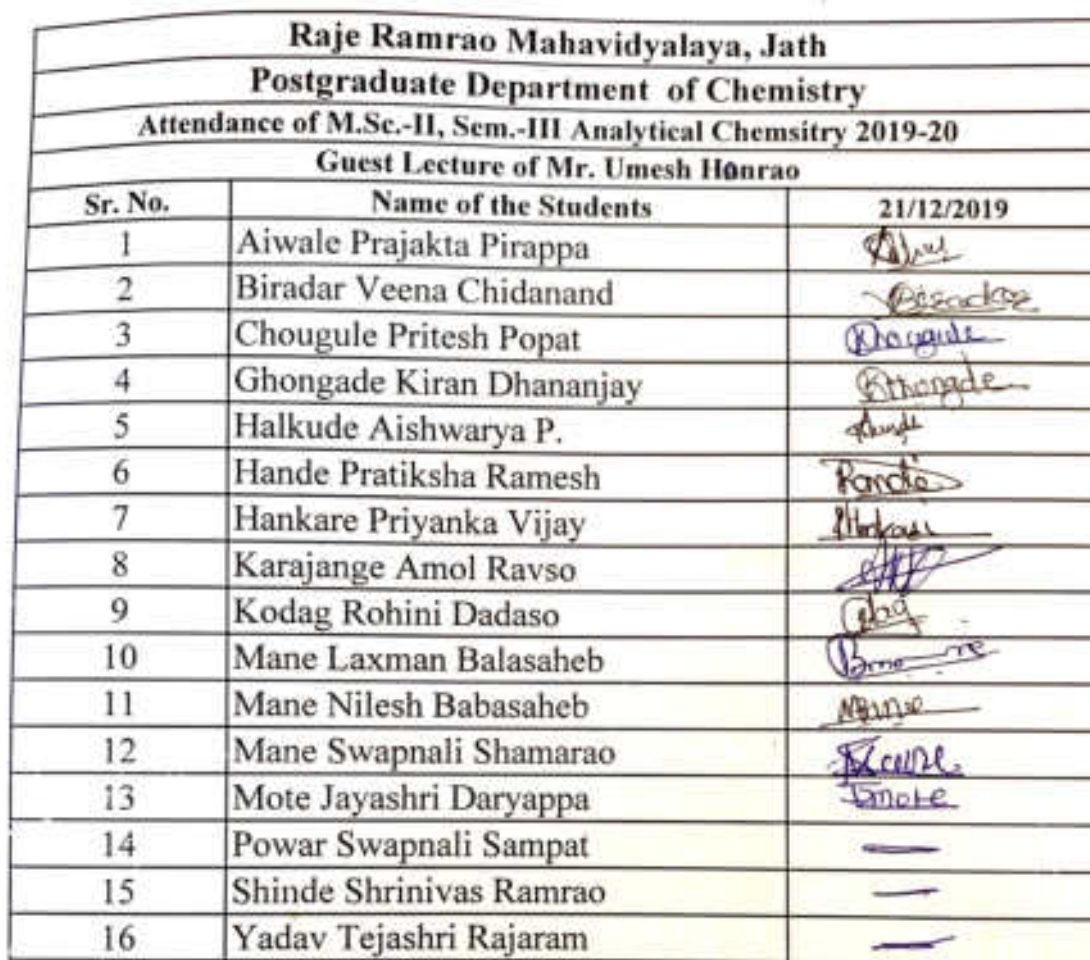 Raje Ramrao Mahavidyalaya, Jath
Postgraduate Department of Chemistry
Attendance of M.Sc.-II, Sem.-III Analytical Chemsitry 2019-20
Guest Lecture of Mr. Umesh Honrao
Sr. No. Name of the Students 21/12/2019
1 Aiwale Prajakta Pirappa
2 Biradar Veena Chidanand
3 Chougule Pritesh Popat Chougule
4 Ghongade Kiran Dhananjay
5 Halkude Aishwarya P.
6 Hande Pratiksha Ramesh
7 Hankare Priyanka Vijay
8 Karajange Amol Ravso
9 Kodag Rohini Dadaso
10 Mane Laxman Balasaheb
11 Mane Nilesh Babasaheb
12 Mane Swapnali Shamarao
13 Mote Jayashri Daryappa Jmote
14 Powar Swapnali Sampat —
15 Shinde Shrinivas Ramrao —
16 Yadav Tejashri Rajaram —